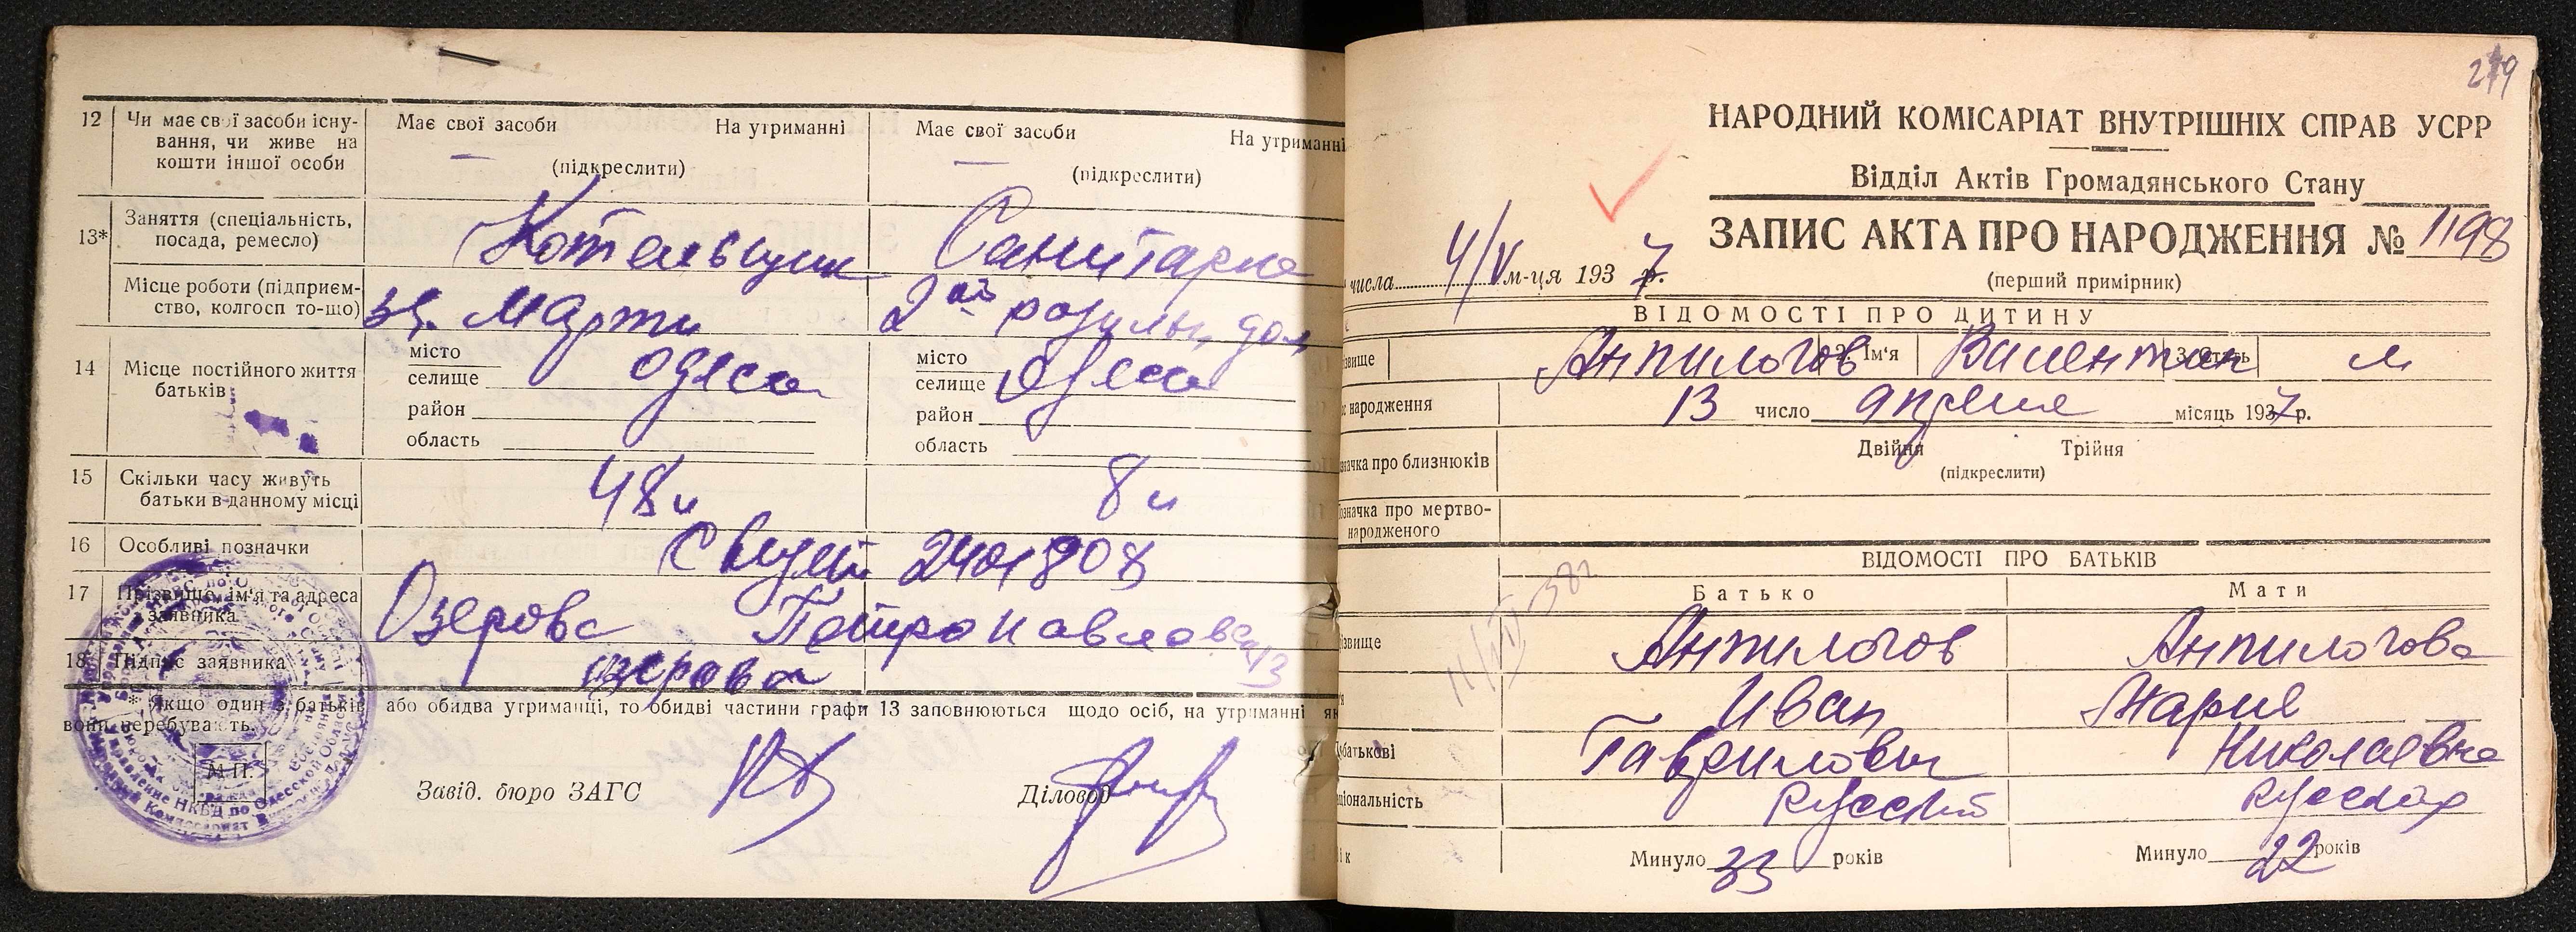 12 Чи має свої засоби існу-
вання, чи живе на
кошти іншої особи
Має свої засоби На утриманні
(підкреслити)
Має свої засоби На утриманні
(підкреслити)
13* Заняття (спеціальність,
посада, ремесло)
Котельщик
Санитарка
Місце роботи (підприєм-
ство, колгосп то-що)
зд. Марти
2ой родильн. дом
14 Місце постійного життя
батьків
місто
селище Одесса
район
область
місто
селище Одесса
район
область
15 Скільки часу живуть
батьки в данному місці
48 л
8 л
16 Особливі позначки
17 Прізвище, ім'я та адреса
заявника
Озерова Павлова 13
18 Підпис заявника
Озерова
* Якщо один з батьків або обидва утриманці, то обидві частини графи 13 заповнюються щодо осіб, на утриманні як
вони перебувають.
М.П.
Завід. бюро ЗАГС
Діловод
279
НАРОДНИЙ КОМІСАРІАТ ВНУТРІШНІХ СПРАВ УСРР
Відділ Актів Громадянського Стану
ЗАПИС АКТА ПРО НАРОДЖЕННЯ № 1198
(перший примірник)
числа 4/V м-ця 1937 р.
ВІДОМОСТІ ПРО ДИТИНУ
звище Анпилогов 2. Ім'я Валентин 3. Стать м
народження 13 число апреля місяць 1937 р.
значка про близнюків
Двійня Трійня
(підкреслити)
значка про мертво-
народженого
ВІДОМОСТІ ПРО БАТЬКІВ
Батько Мати
ізвище Анпилогов Анпилогова
Иван Мария
батькові Гаврилович Николаевна
ціональність Русский Русская
ік Минуло 33 років Минуло 22 років